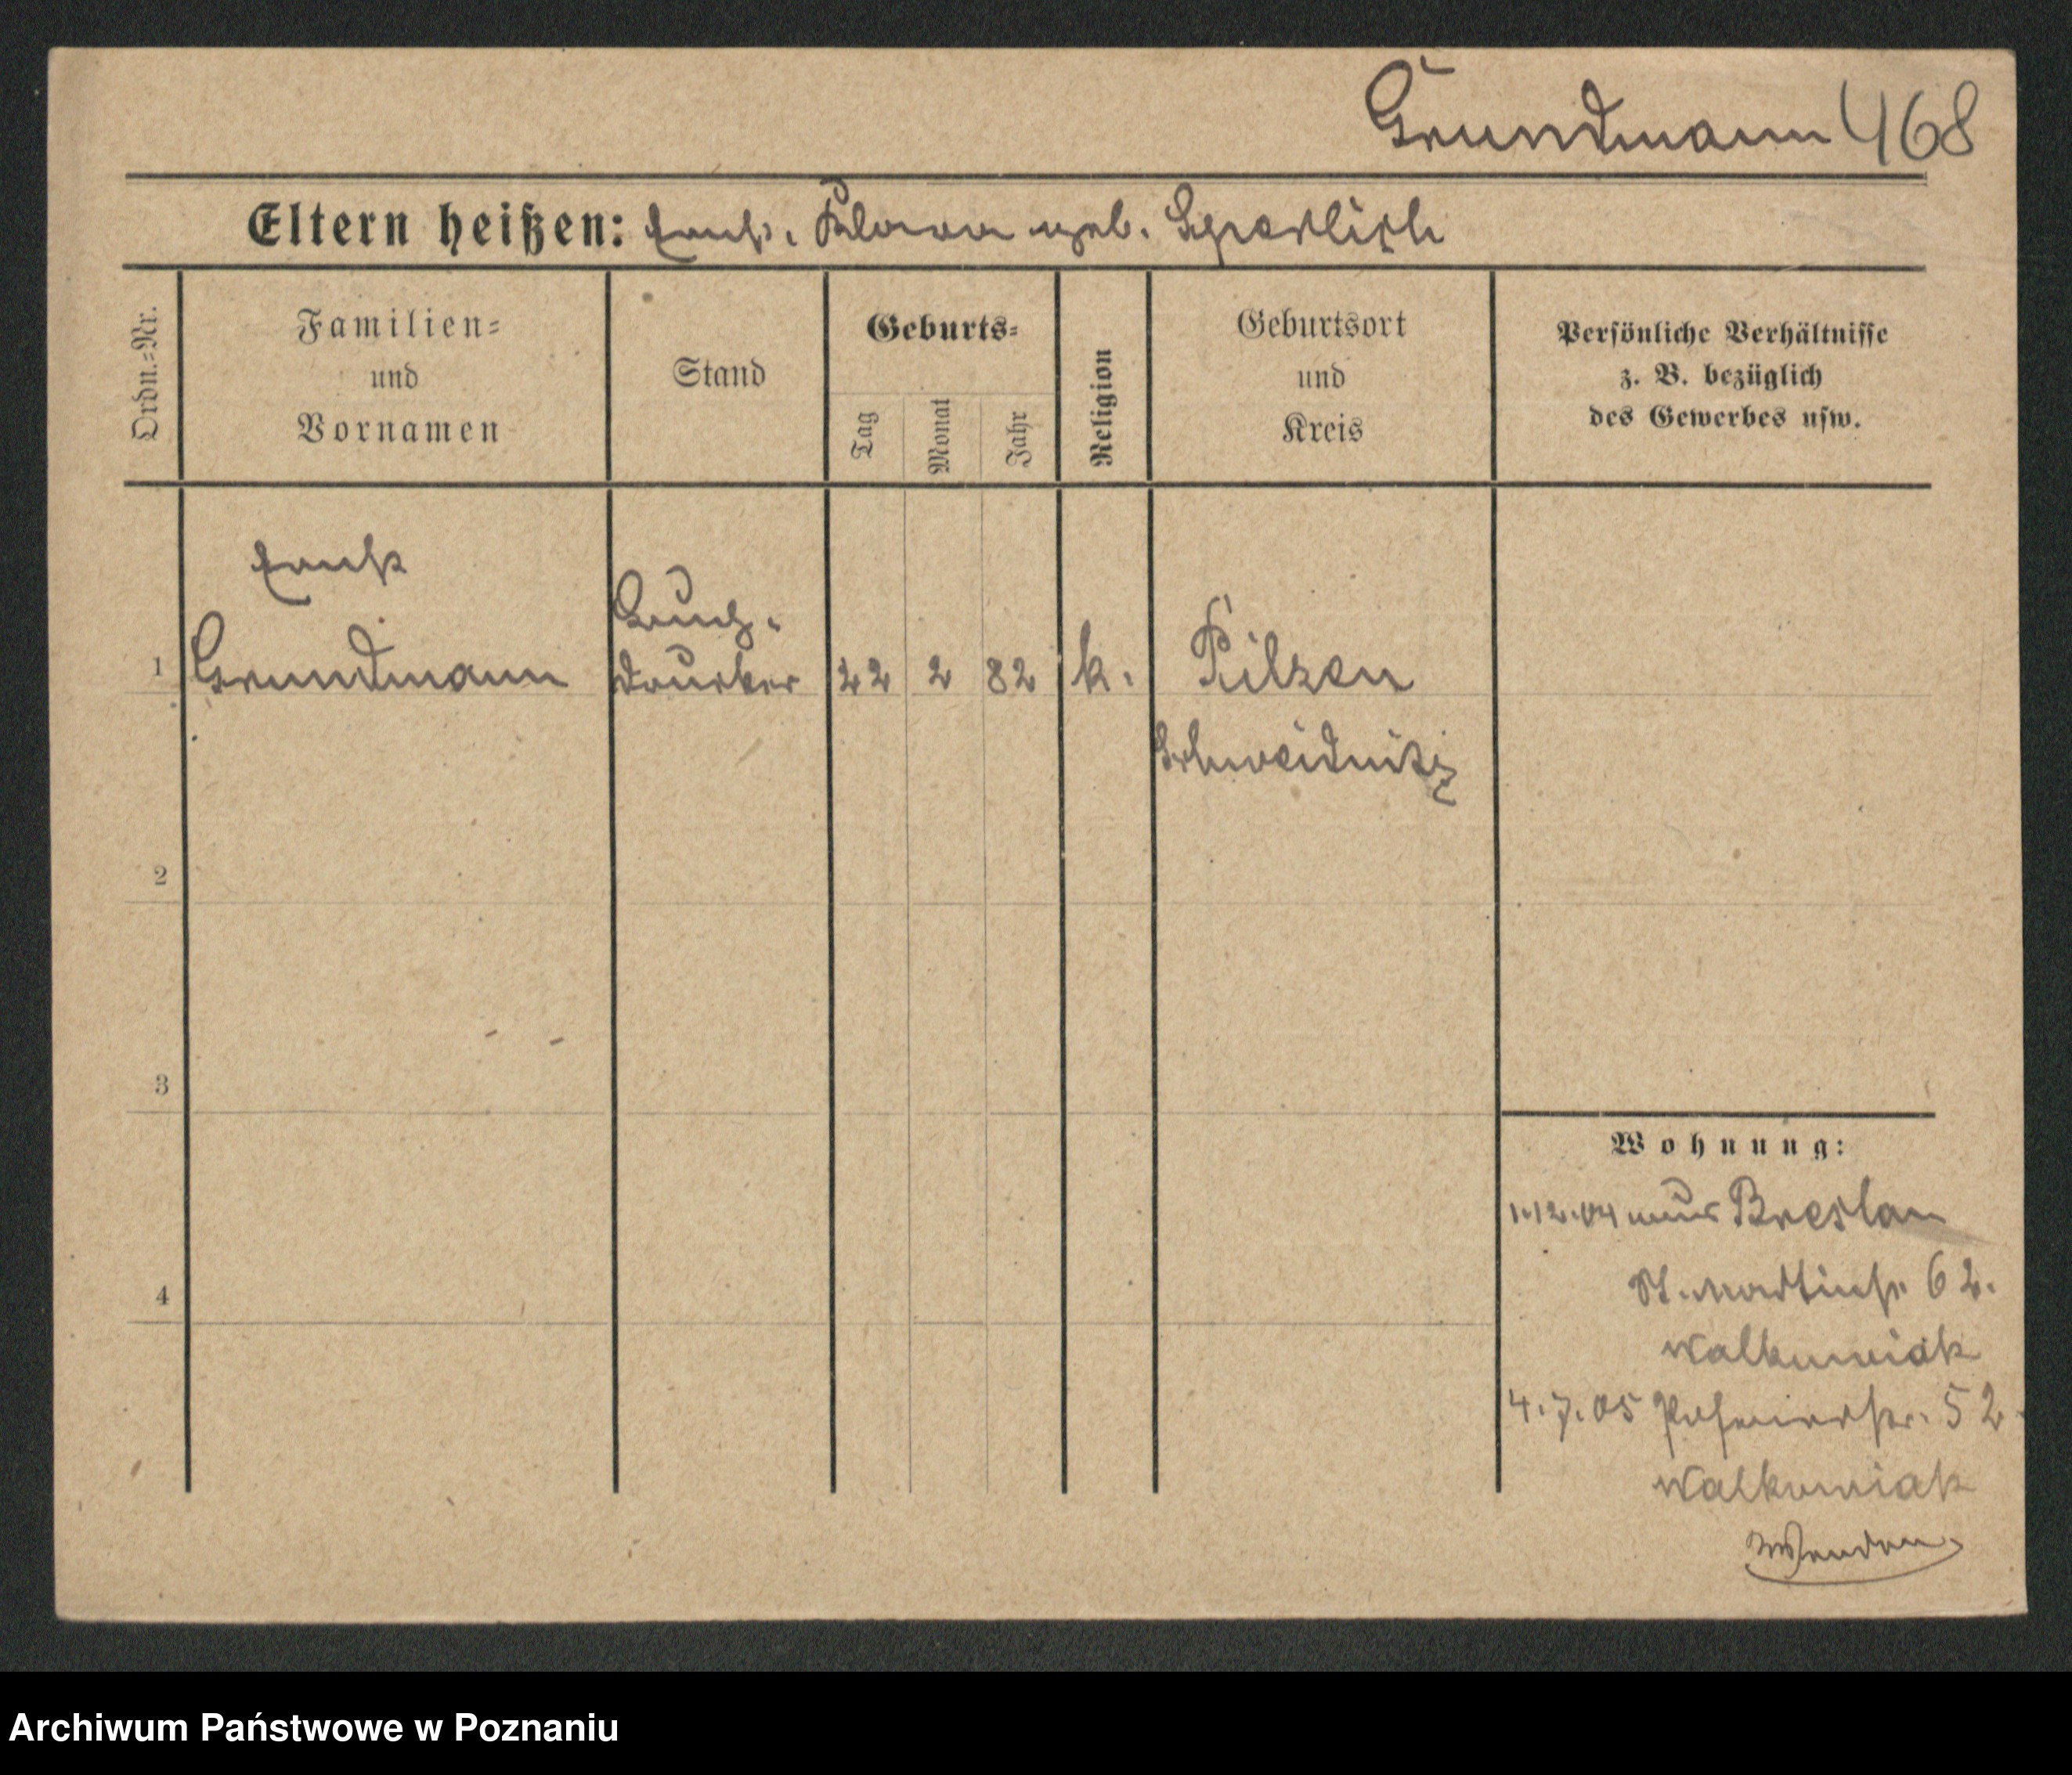 Grundmann 468
Eltern heißen: Ernst. Klara geb. Sperlich
Ordn.=Nr.
Familien=
und
Vornamen
Stand
Geburts=
Tag
Monat
Jahr
Religion
Geburtsort
und
Kreis
Persönliche Verhältnisse
z. B. bezüglich
des Gewerbes usw.
Ernst
1 Grundmann
drucker 22 2 82 k. Pilzen
Schweidnitz
2
3
4
Wohnung:
1.12.04 aus Breslau
St. Martinstr. 62.
Walkowiak
4.7.05 Posenerstr. 52
Walkowiak
Wenden
Archiwum Państwowe w Poznaniu